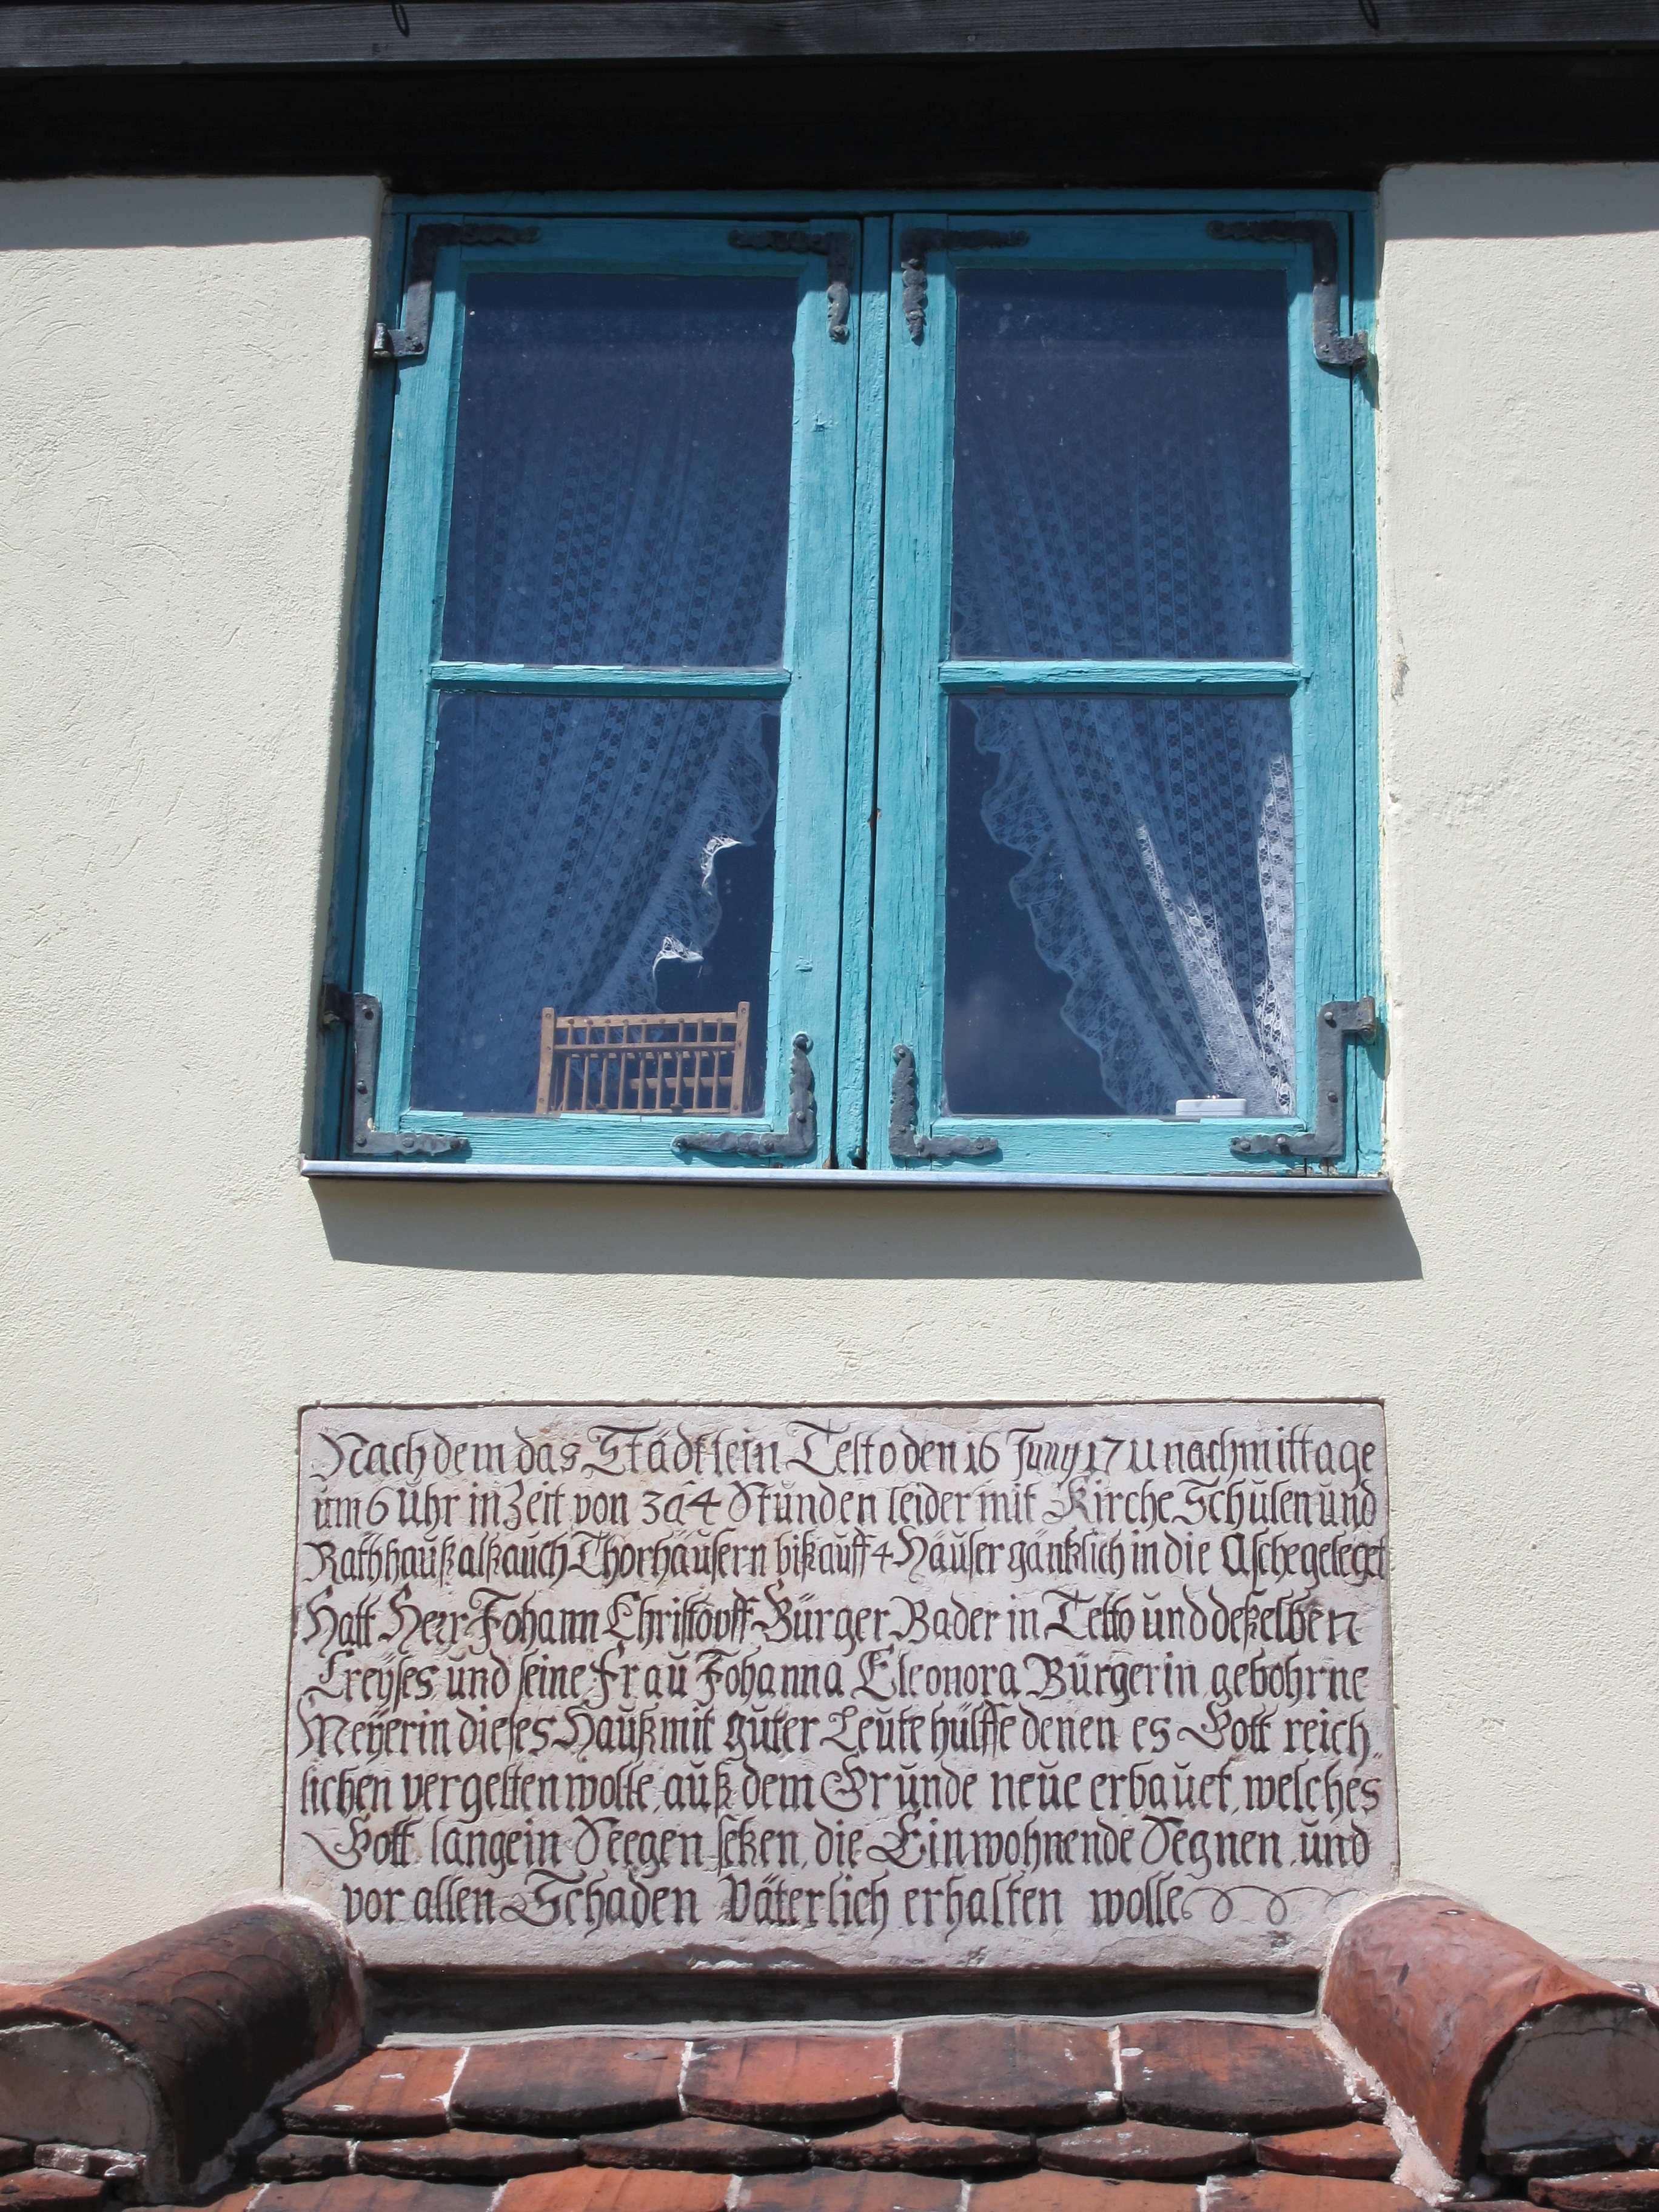 Nachdem das Städtlein Telto den 16 Juny 1711 nachmittage
um 6 Uhr in Zeit von 3 â 4 Stunden leider mit Kirche Schulen und
Rathhauß alß auch Thorhäusern biß auff 4 Häuser gäntzlich in die Asche geleget
Hatt Herr Johann Christoff Bürger Bader in Telto und deßelben
Creyses und seine Frau Johanna Eleonora Bürgerin gebohrne
Meyerin dieses Hauß mit guter Leute hülffe denen es Gott reich„
lichen vergelten wolle, auß dem Grunde neue erbauet, welches
Gott lange in Seegen setzen, die Einwohnende Segnen, und
vor allen Schaden Väterlich erhalten wolle